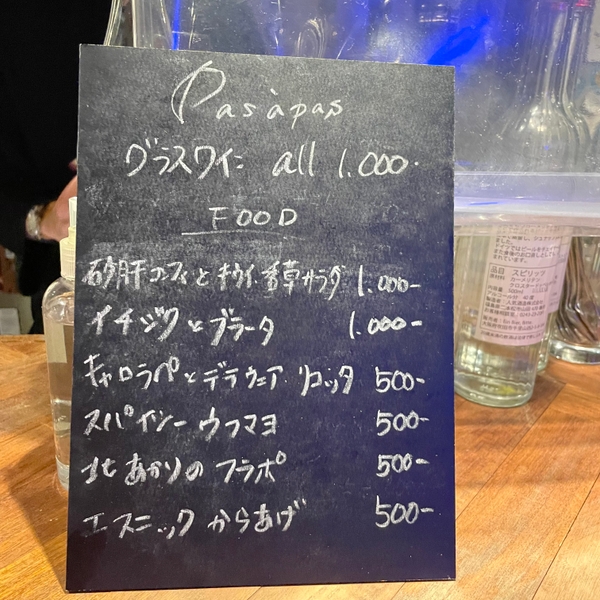 Pas à pas
グラスワイン all 1.000-
FOOD
砂肝コンフィとキウイ、香草サラダ 1.000-
イチジクとブラータ 1.000-
キャロラペとデラウェア、リコッタ 500-
スパイシーウフマヨ 500-
北あかりのフラポ 500-
エスニックからあげ 500-
品目 スピリッツ